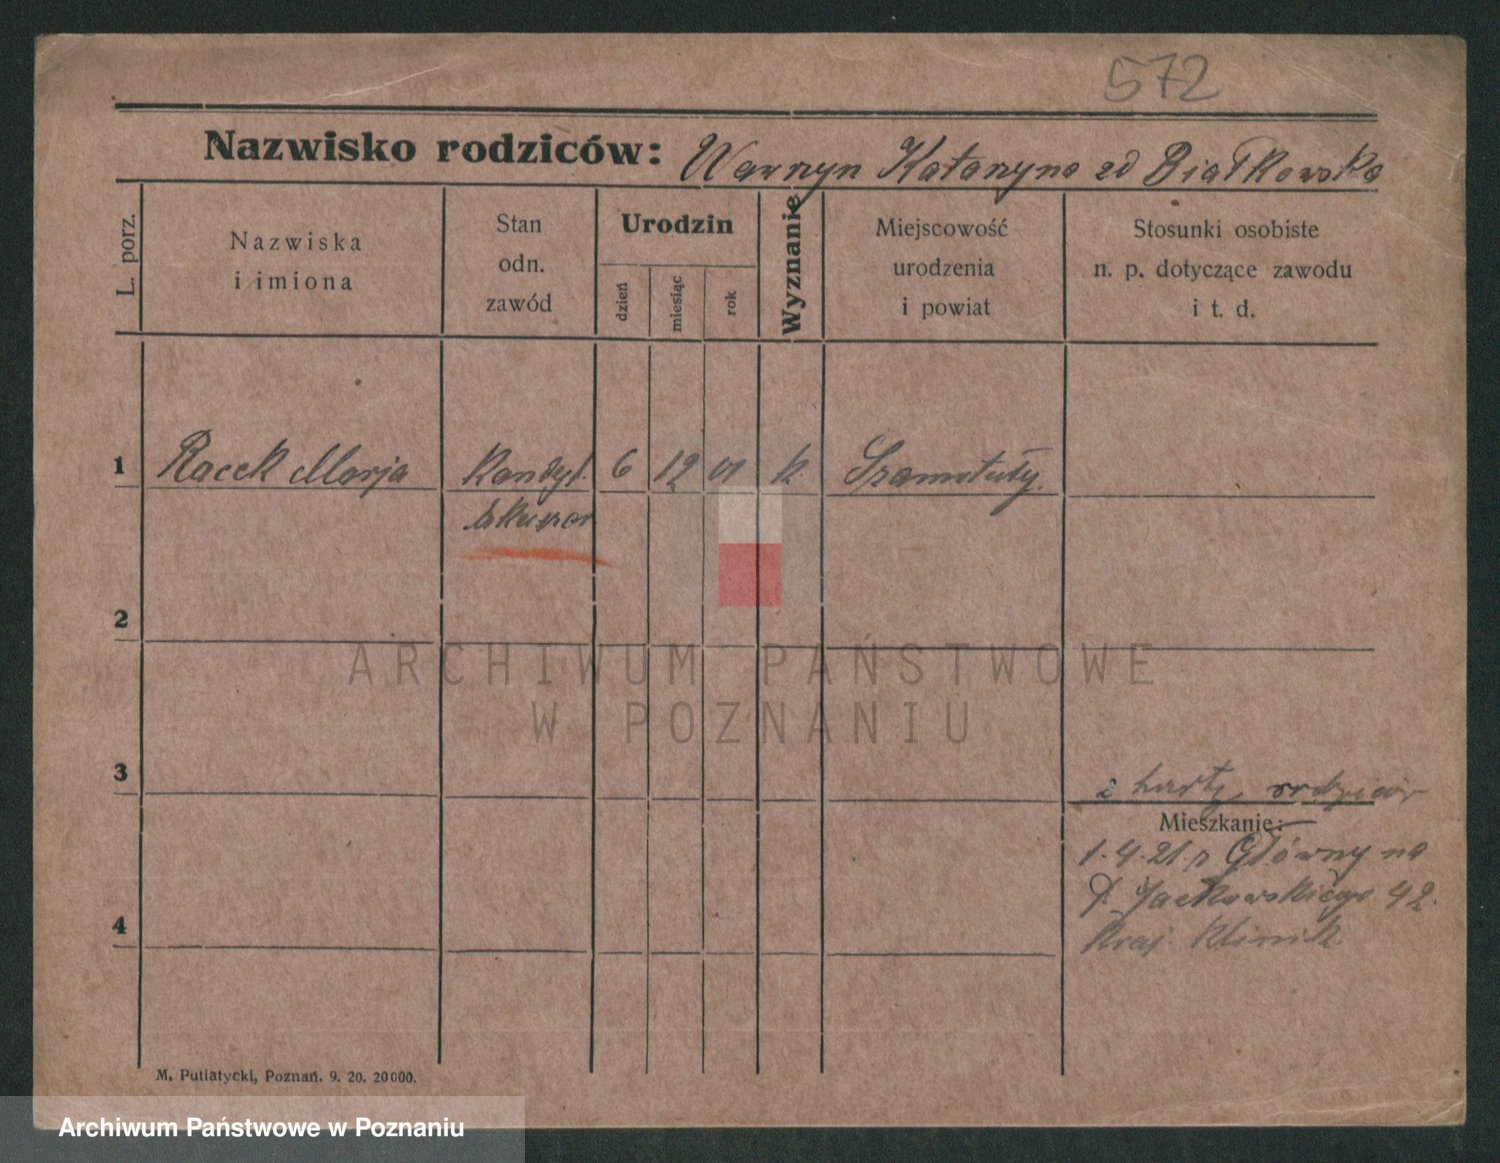 572
Nazwisko rodziców: Wawrzyn Katarzyna zd Białkowska
L. porz.
Nazwiska
i imiona
Stan
odn.
zawód
Urodzin
dzień
miesiąc
rok
Wyznanie
Miejscowość
urodzenia
i powiat
Stosunki osobiste
n. p. dotyczące zawodu
i t. d.
1 Racek Marja Kandyt. 6 12 01 k. Szamotuły.
Akuszer
2
ARCHIWUM PAŃSTWOWE
W POZNANIU
3
z karty rodziców
Mieszkanie:
1.4.21. z Główny na
Jackowskiego 42.
Kraj. Klinik.
4
M. Putiatycki, Poznań. 9. 20. 20000.
Archiwum Państwowe w Poznaniu